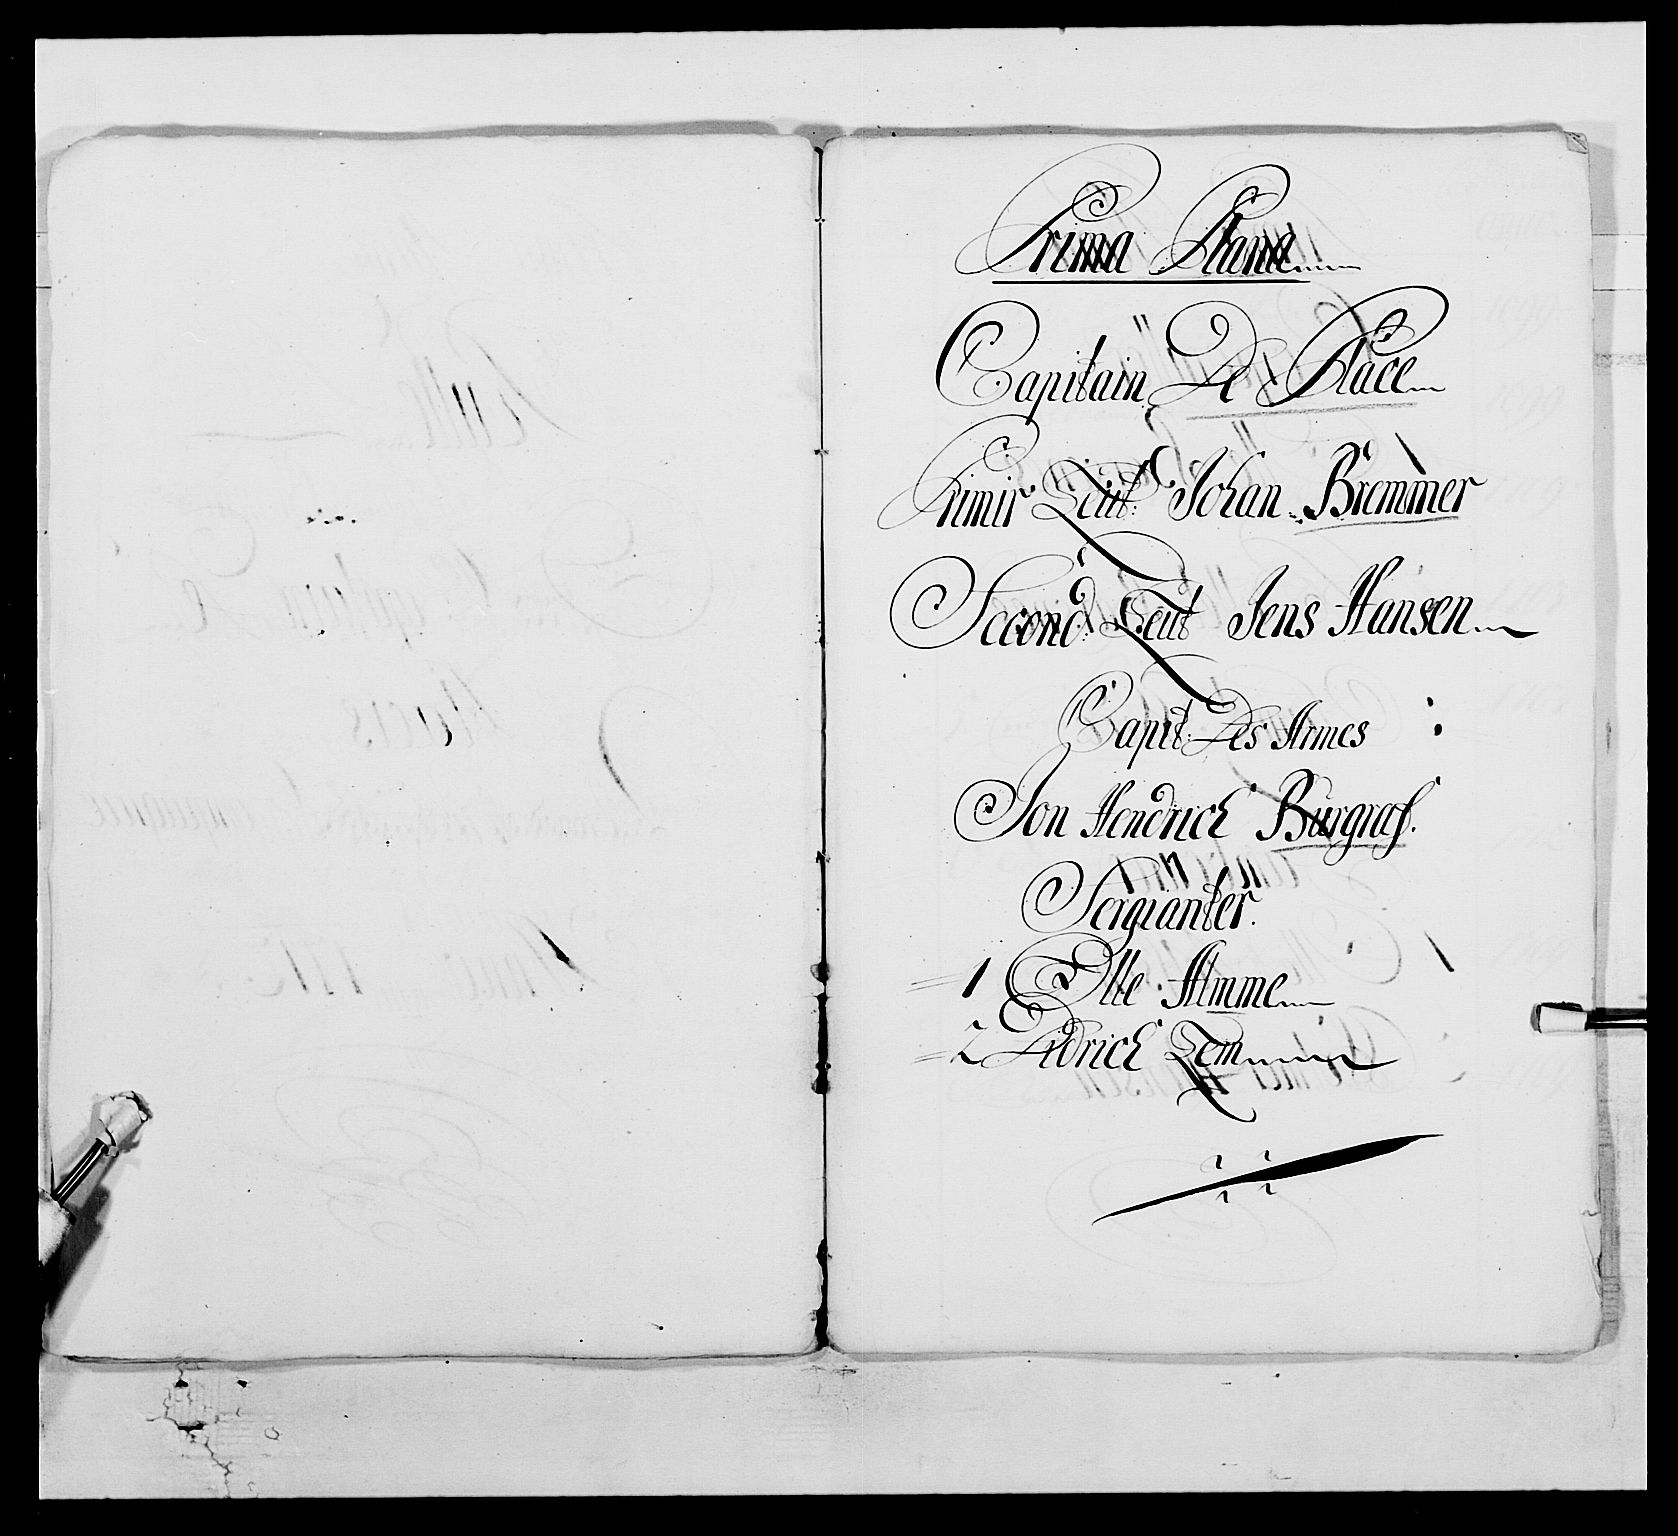 Prima Plana
Capitain De Place
Primir Leut: Johan Bremmer
Second: Leut Jens Hansen
Capit: Des Armes
Jon Hendrich Burgraf.
Sergianter.
1 Olle Amme
2 Didrich Lem